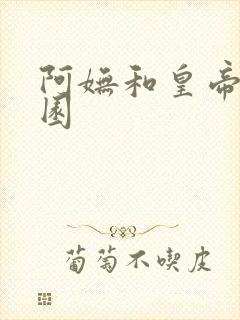 阿嫵和皇帝
園
葡萄不喫皮